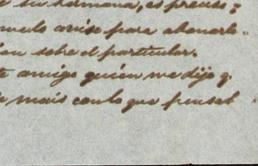 su hermana, es preciso
aviso para abonarle
sobre el particular.
amigo quién me dijo q.
mais con lo que pensab